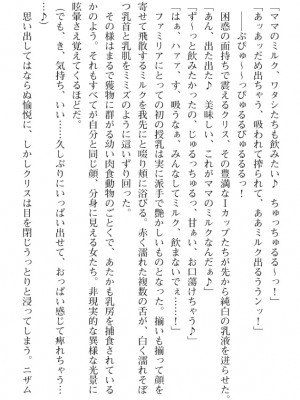 「ママのミルク、ワタシたちも飲みたい♪　ちゅっちゅるる～っ！」
「アッあッだめ出ちゃう、吸われて搾られて、ああミルク出るううンッ！」
――ぶぴゅ～～っぴゅるるぴゅるるるっ！
困惑の面持ちで震えるクリス、その豊満なIカップたちが先から純白の乳液を迸らせた。
「あん、出た出た♪　美味しい、これがママのミルクなんだぁ♪」
「ずーっと飲みたかったの、じゅるっちゅるっ、甘ぁい、お口蕩けちゃう♪」
「はぁ、ハァァ、す、吸うなぁ、みんなしてミルク、飲まないでぇ……！」
ファミリアにとっての初の授乳は実に派手で艶かしいものとなった。揃いも揃って顔を
寄せて飛散するミルクを我先にと啜り頬に浴びる。赤く濡れた複数の舌が、白く濡れそぼ
つ乳首と乳肌をミミズのように這いずり回った。
その様はまるで獲物に群がる幼い肉食動物のごとくで、あたかも乳房を捕食されている
かのよう。それもすべてが自分と同じ顔、分身に見える女たち。非現実的な異様な光景に
眩暈さえ覚えてくるほどだ。
（でも、き、気持ち、いい……久しぶりにいっぱい出せて、おっぱい感じて痺れちゃう…
♪）
思い出してはならぬ愉悦に、しかしクリスは目を閉じうっとりと浸ってしまう。ニザム